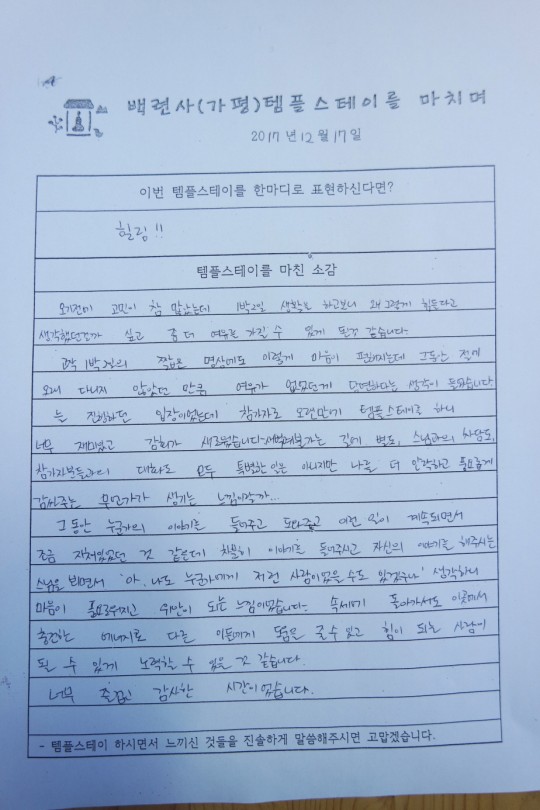 백련사(가평)템플스테이를 마치며
2017년 12월 17일
이번 템플스테이를 한마디로 표현하신다면?
힐링!!
템플스테이를 마친 소감
오기전에 고민이 참 많았는데 1박2일 생활을 하고보니 왜 그렇게 힘들다고
생각했던걸까 싶고 좀 더 여유를 가질 수 있게 된것 같습니다.
고작 1박2일의 짧은 명상에도 이렇게 마음이 편해지는데 그동안 절에
오래 다니지 않았던 만큼 여유가 없었던게 당연하다는 생각이 들었습니다
늘 진행하던 입장이었는데 참가자로 오랜만에 템플스테이를 하니
너무 재미있고 감회가 새로웠습니다. 새벽예불가는 길에 별도, 스님과의 차담도,
참가자분들과의 대화도 모두 특별한 일은 아니지만 나를 더 안락하고 풍요롭게
감싸주는 무언가가 생기는 느낌이랄까...
그동안 누군가의 이야기를 들어주고 도와주고 이런 일이 계속되면서
조금 지쳐있었던 것 같은데 차분히 이야기를 들어주시고 자신의 이야기를 해주시는
스님을 뵈면서 '아, 나도 누군가에게 저런 사람이었을 수도 있겠구나' 생각하니
마음이 풍요로워지고 위안이 되는 느낌이었습니다. 속세에 돌아가서도 이곳에서
충전한 에너지로 다른 이들에게 도움을 줄 수 있고 힘이 되는 사람이
될 수 있게 노력할 수 있을 것 같습니다.
너무 즐겁고 감사한 시간이었습니다.
- 템플스테이 하시면서 느끼신 것들을 진솔하게 말씀해주시면 고맙겠습니다.